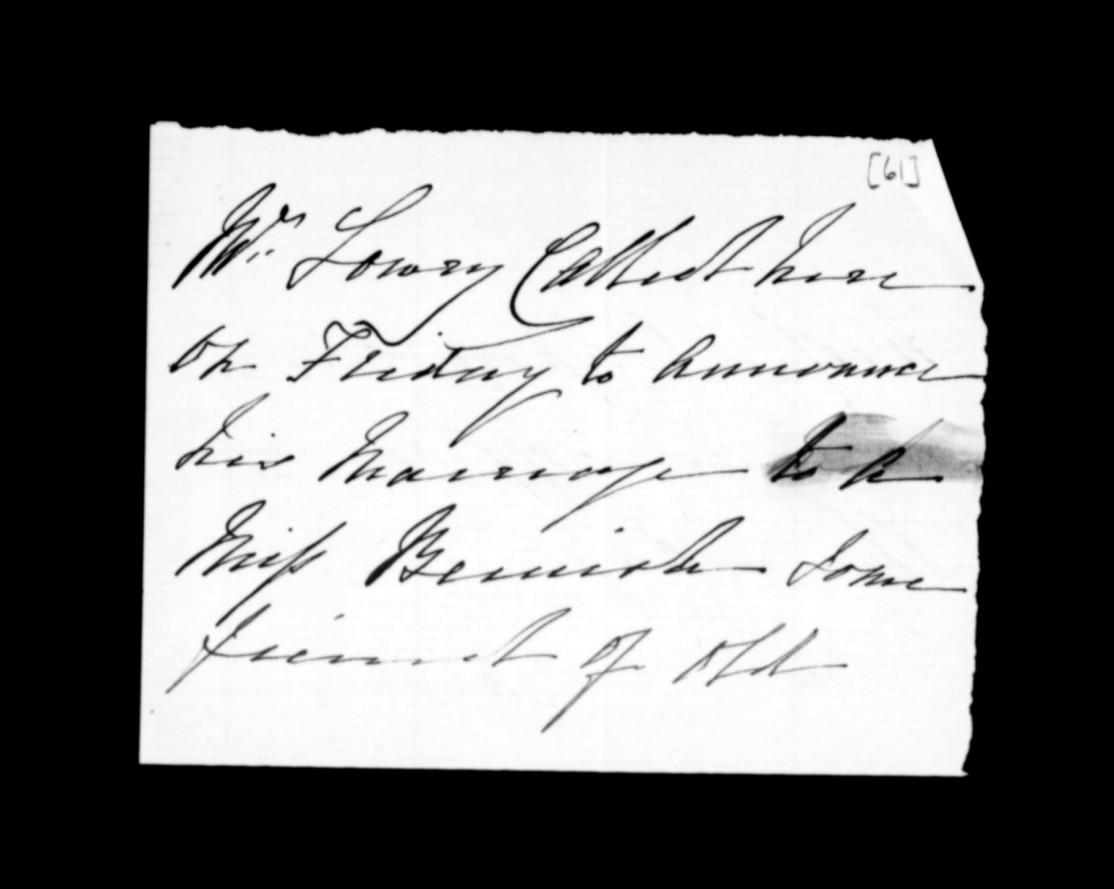 [61]
Mr. Lowry Called here
on Friday to announce
his Marriage to a
Miss some
friend of old